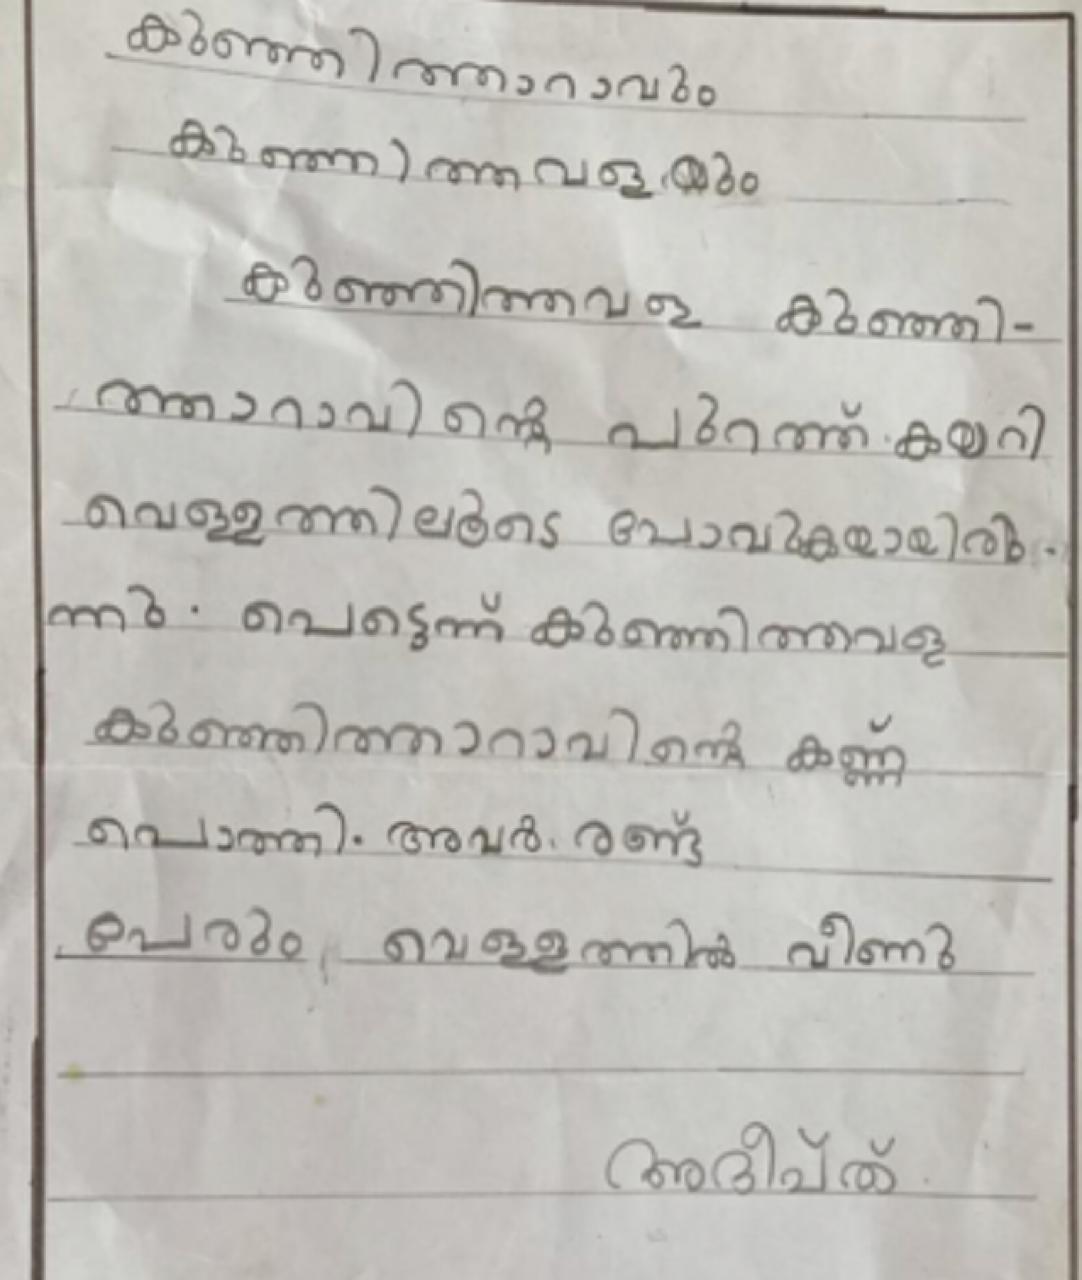 കുഞ്ഞിത്താറാവും
കുഞ്ഞിത്തവളയും
കുഞ്ഞിത്തവള കുഞ്ഞി-
ത്താറാവിന്റെ പുറത്ത് കയറി
വെള്ളത്തിലൂടെ പോവുകയായിരു
ന്നു. പെട്ടെന്ന് കുഞ്ഞിത്തവള
കുഞ്ഞിത്താറാവിന്റെ കണ്ണ്
പൊത്തി. അവർ രണ്ട്
പേരും വെള്ളത്തിൽ വീണു